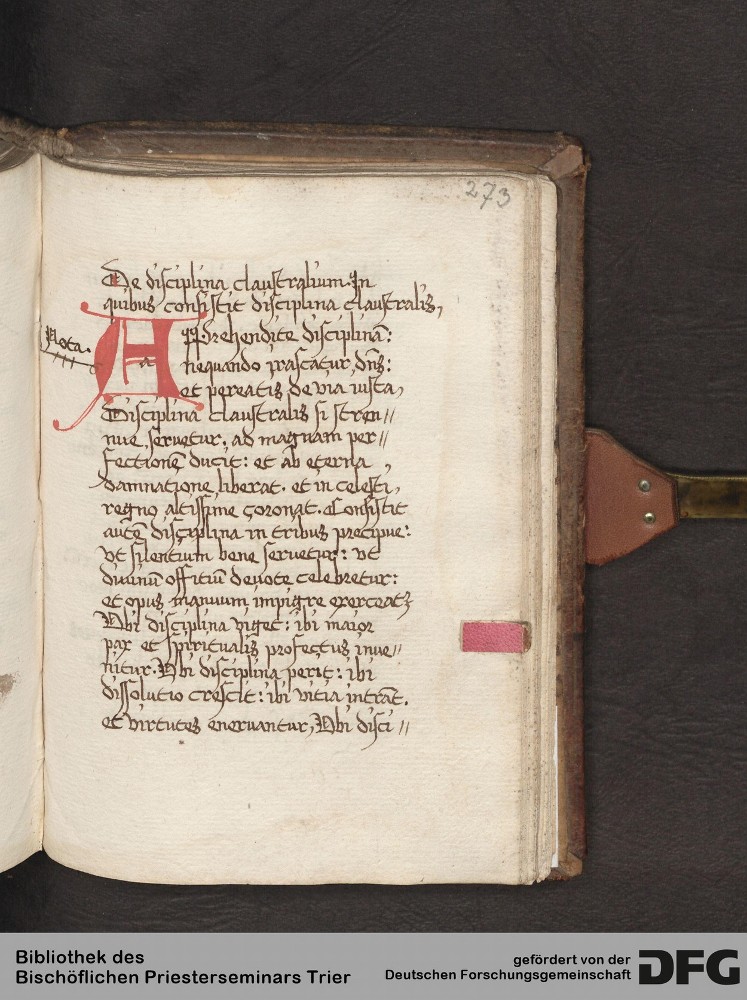 273
De disciplina claustralium. In
quibus consistit disciplina claustralis,
Nota.
APprehendite disciplinā:
nequando irascatur dn̄s:
et pereatis de via iusta,
Disciplina claustralis si stren//
nue seruetur, ad magnam per//
fectionē ducit: et ab eterna
damnatione liberat. et in celesti,
regno altissime coronat. Consistit
autē disciplina in tribus precipue:
Vt silentium bene seruetur: vt
diuinū offitiū deuote celebretur:
et opus manuum impigre exerceatꝫ
Vbi disciplina viget: ibi maior
pax et spiritualis profectus inue//
nitur. Vbi disciplina perit: ibi
dissolutio crescit: ibi vitia intrāt.
et virtutes eneruantur, Vbi disci//
Bibliothek des
Bischöflichen Priesterseminars Trier
gefördert von der
Deutschen Forschungsgemeinschaft
DFG